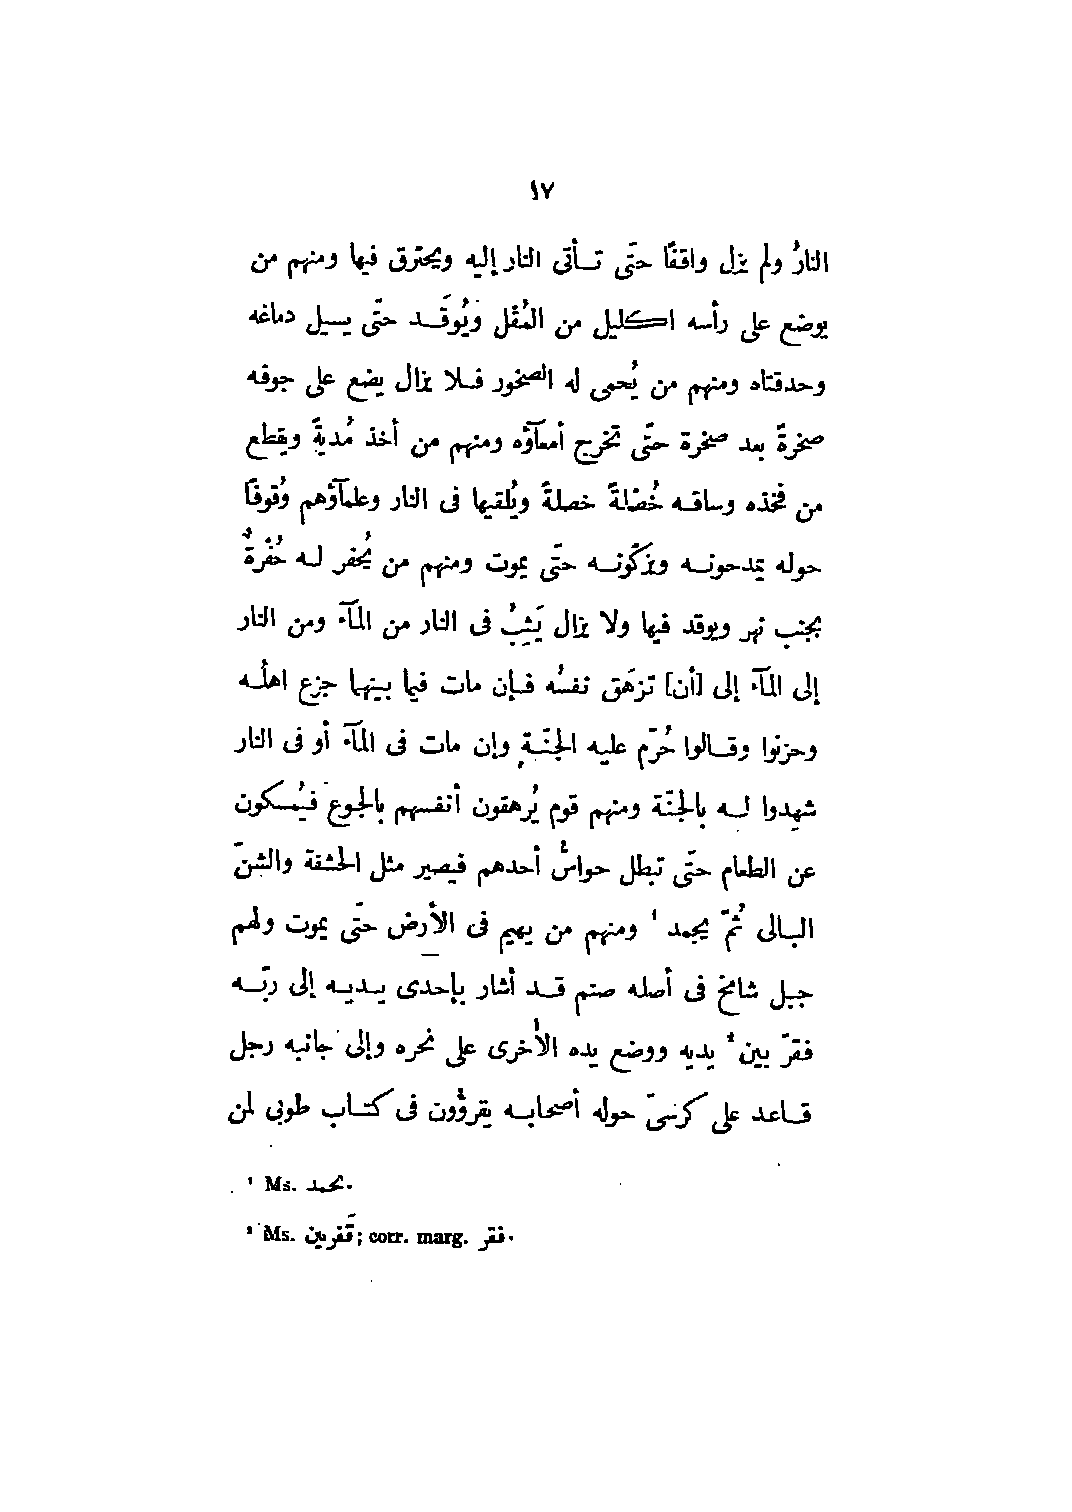 ١٧
النارُ ولم يزل واقفًا حتّى تـأتى النار إليه ويحترق فيها ومنهم من
يوضع على رأسه اكليل من المُقْل ويُوقَـد حتّى يسيل دماغه
وحدقتاه ومنهم من يُحمى له الصخور فـلا يزال يضع على جوفه
صخرةً بعد صخرة حتّى تخرج أمعآؤه ومنهم من أخذ مُديةً ويقطع
من فخذه وساقـه خُصْلةً خصلةً ويُلقيها فى النار وعلمآؤهم وُقوفًا
حوله يمدحونـه ويزكّونـه حتّى يموت ومنهم من يُحفر لـه حُفْرةٌ
بجنب نهر ويوقد فيها ولا يزال يَثِبُ فى النار من المآء ومن النار
إلى المآء إلى [أن] تزهَق نفسُه فـإن مات فيما بينها جزع اهلُـه
وحزنوا وقـالوا حُرّم عليه الجنّـة وإن مات فى المآء أو فى النار
شهدوا لـه بالجنّة ومنهم قوم يُرهقون أنفسهم بالجوع فيُمسكون
عن الطعام حتّى تبطل حواسُّ أحدهم فيصير مثل الحشفة والشنّ
البـالى ثُمّ يجمد ¹ ومنهم من يهيم فى الأرض حتّى يموت ولهم
جبل شامخ فى أصله صنم قـد أشار بإحدى يـديـه إلى ربّـه
فقرّ بين ² يديه ووضع يده الأُخرى على نحره وإلى جانبه رجل
قـاعد على كرسىّ حوله أصحابـه يقرؤُون فى كتاب طوبى لمن
¹ Ms. يحمد.
² Ms. قَفربين; corr. marg. فقر.